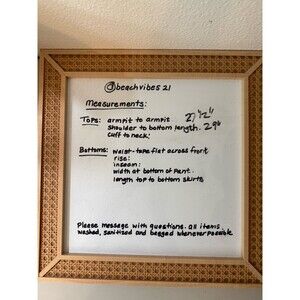 @beachvibes21
Measurements:
Tops: armpit to armpit 21 1/2"
shoulder to bottom length. 29"
cuff to neck:
Bottoms: waist-tape flat across front
rise:
inseam:
width at bottom of pant.
length top to bottom skirts
Please message with questions. all items
washed, sanitized and bagged whenever possible.